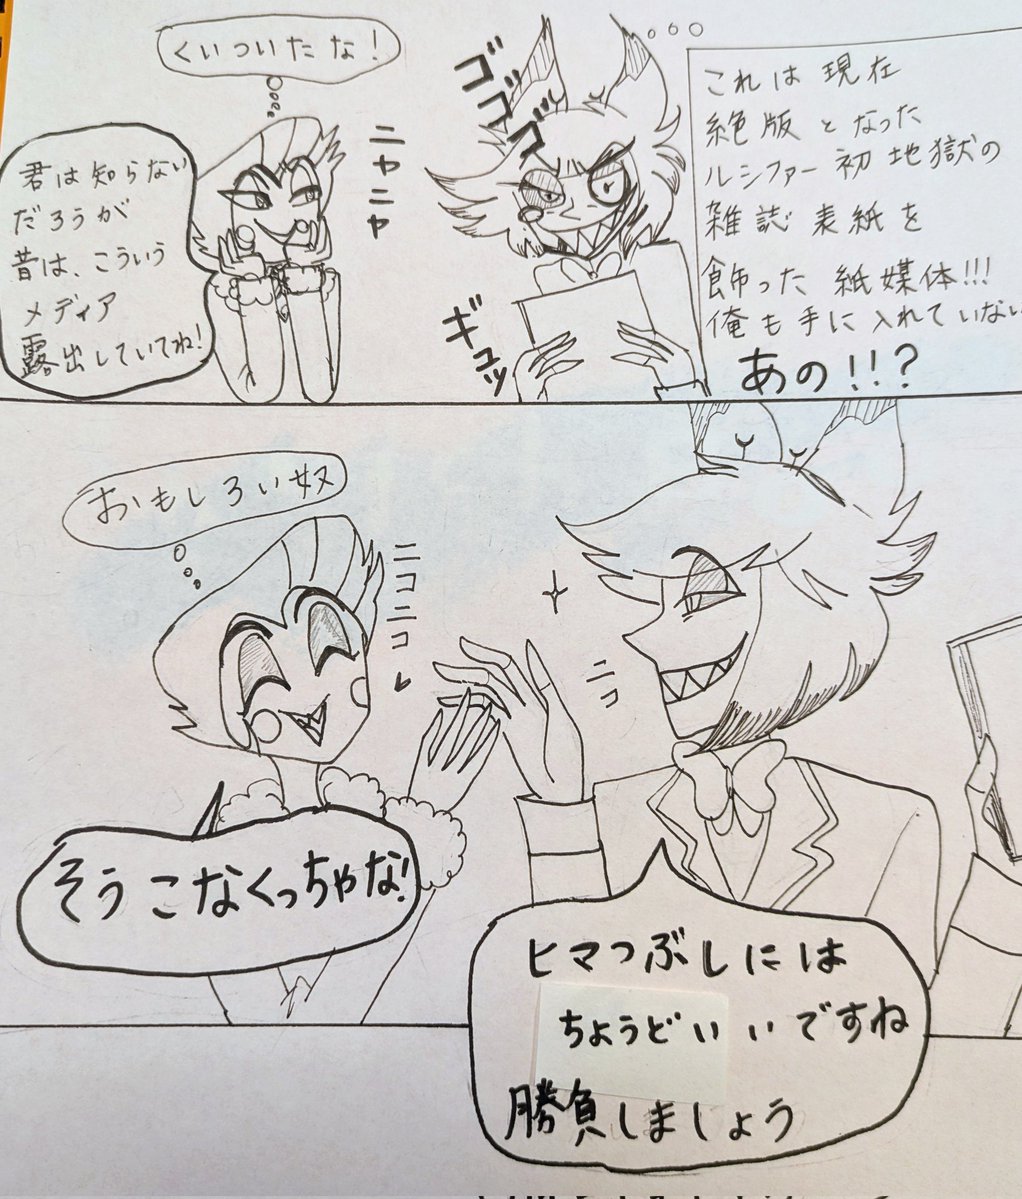 これは現在
絶版となった
ルシファー初地獄の
雑誌表紙を
飾った紙媒体!!!
俺も手に入れていない
あの!!?
ゴゴゴゴ
ギュッ
くいついたな!
ニヤニヤ
君は知らない
だろうが
昔は、こういう
メディア
露出していてね!
おもしろい奴
ニコニコ
ニコ
そうこなくっちゃな!
ヒマつぶしには
ちょうどいいですね
勝負しましょう